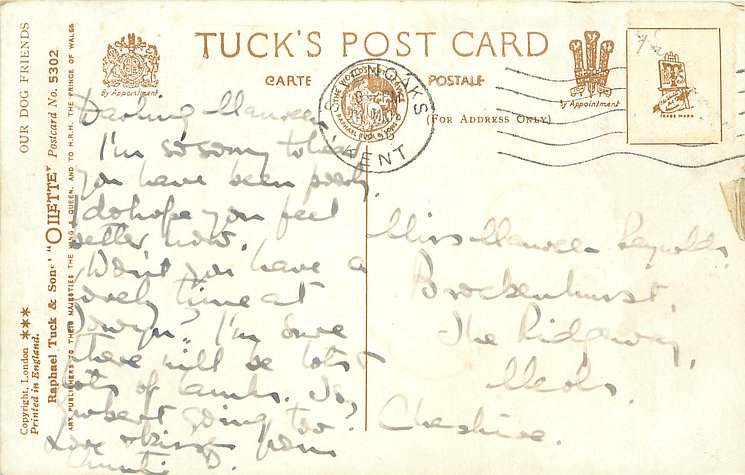 TUCK'S POST CARD
CARTE POSTALE
(FOR ADDRESS ONLY)
By Appointment
By Appointment
TRADE MARK
KENT
OUR DOG FRIENDS
Raphael Tuck & Sons' "OILETTE" Postcard No. 5302
ART PUBLISHERS TO THEIR MAJESTIES THE KING & QUEEN, AND TO H.R.H. THE PRINCE OF WALES
Copyright, London ***
Printed in England.
Darling Maureen
I'm so sorry to hear
you have been poorly.
I do hope you feel
better now.
Won't you have a
lovely time at
I'm sure
there will be lots
lots of lambs. Is
Robert going too?
Love & kisses from
Auntie D.
Miss Maureen Reynolds,
Brockenhurst,
The Ridgeway,
Meols.
Cheshire.